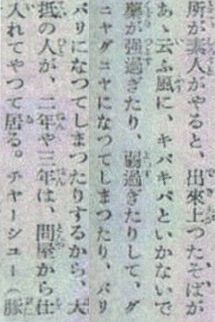 所が素人がやると、出來上つたそばが
あゝ云ふ風に、キパキパといかないで
藥が強過ぎたり、弱過ぎたりして、グ
ニヤグニヤになつてしまつたり、バリ
バリになつてしまつたりするから、大
抵の人が、二年や三年は、問屋から仕
入れてやつて居る。チヤーシユー（豚